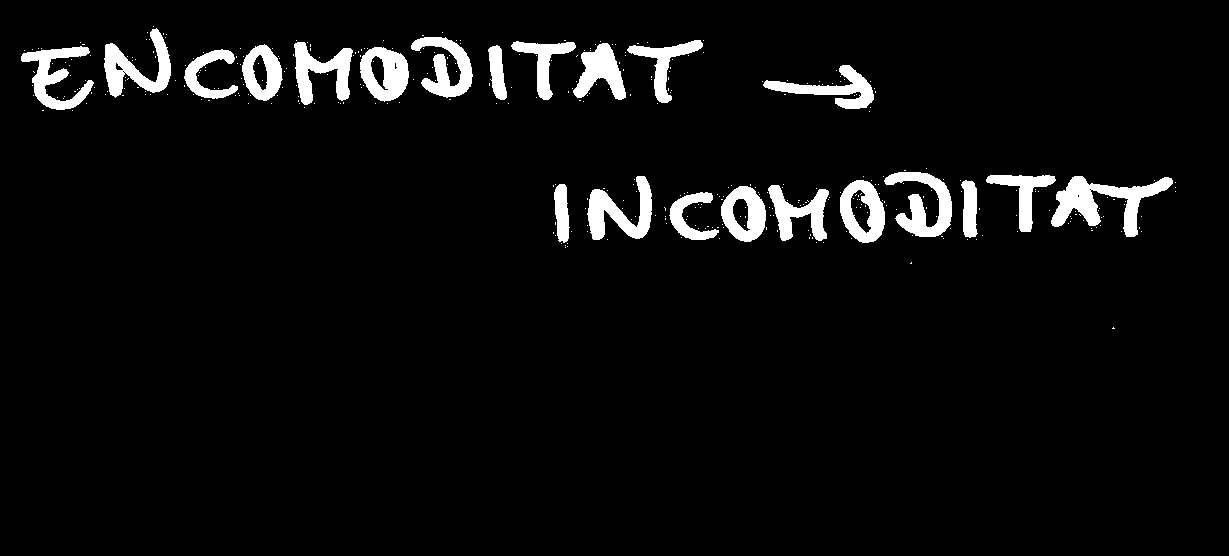 ENCOMODITAT →
INCOMODITAT